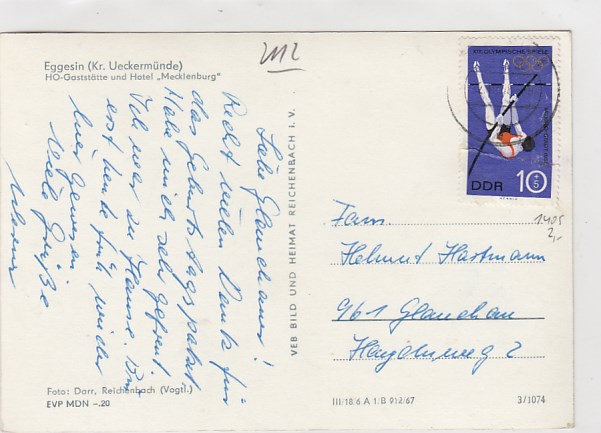 Eggesin (Kr. Ueckermünde)
HO-Gaststätte und Hotel „Mecklenburg"
Liebe Glauchauer!
Recht vielen Dank für
das Geburtstagspaket.
Habe mich sehr gefreut.
Ich war zu Hause. Bin
erst heute früh wieder
hier gewesen.
Viele Grüße
VEB BILD UND HEIMAT REICHENBACH i. V.
Foto: Darr, Reichenbach (Vogtl.)
EVP MDN –.20
XIX. OLYMPISCHE SPIELE
10+5
DDR
1405
2,-
Fam.
Helmut Hartmann
961 Glauchau
2
III/18/6 A 1/B 912/67
3/1074